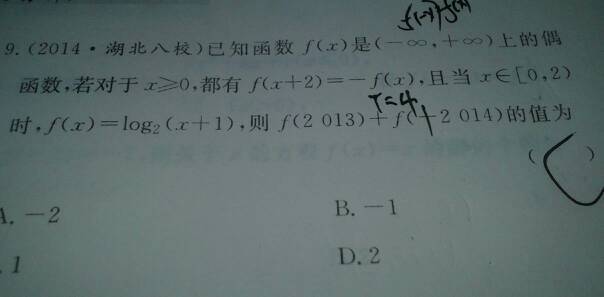 f(-x)=f(x)
9.(2014·湖北八校)已知函数 f(x)是(-∞,+∞)上的偶
函数,若对于 x≥0,都有 f(x+2)=-f(x),且当 x∈[0,2)
T=4
时,f(x)=log₂(x+1),则 f(2 013)+f(-2 014)的值为
( )
A. -2
B. -1
. 1
D. 2